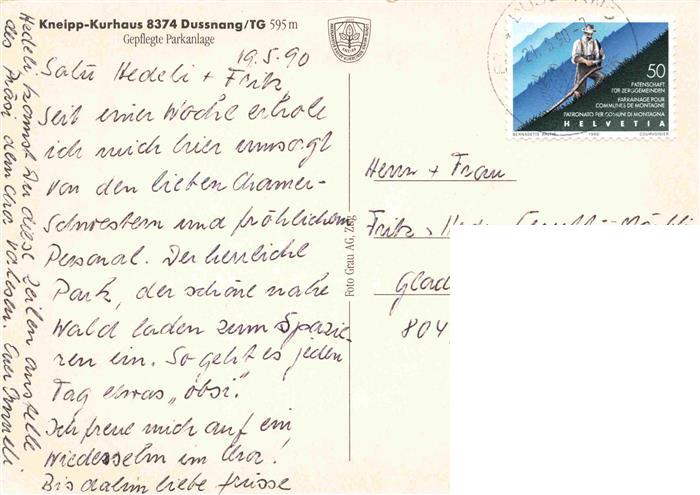 Kneipp-Kurhaus 8374 Dussnang/TG 595 m
Gepflegte Parkanlage
19.5.90
Salü Hedeli + Fritz,
Seit einer Woche erhole
ich mich hier umsorgt
von den lieben Chamer-
Schwestern und fröhlichem
Personal. Der herrliche
Park, der schöne nahe
Wald laden zum Spazie-
ren ein. So geht es jeden
Tag etwas "obsi".
Ich freue mich auf ein
Wiedersehn im Chor!
Bis dahin liebe Grüsse
Hedeli kannst Du diese Zeilen anstelle
des Präsi dem Chor vorlesen. Euer
Foto Grau AG, Zug
50
PATENSCHAFT
FÜR BERGGEMEINDEN
PARRAINAGE POUR
COMMUNES DE MONTAGNE
PATRONATO PER COMUNI DI MONTAGNA
HELVETIA
1990
COURVOISIER
Herrn + Frau
Fritz
Glad
804